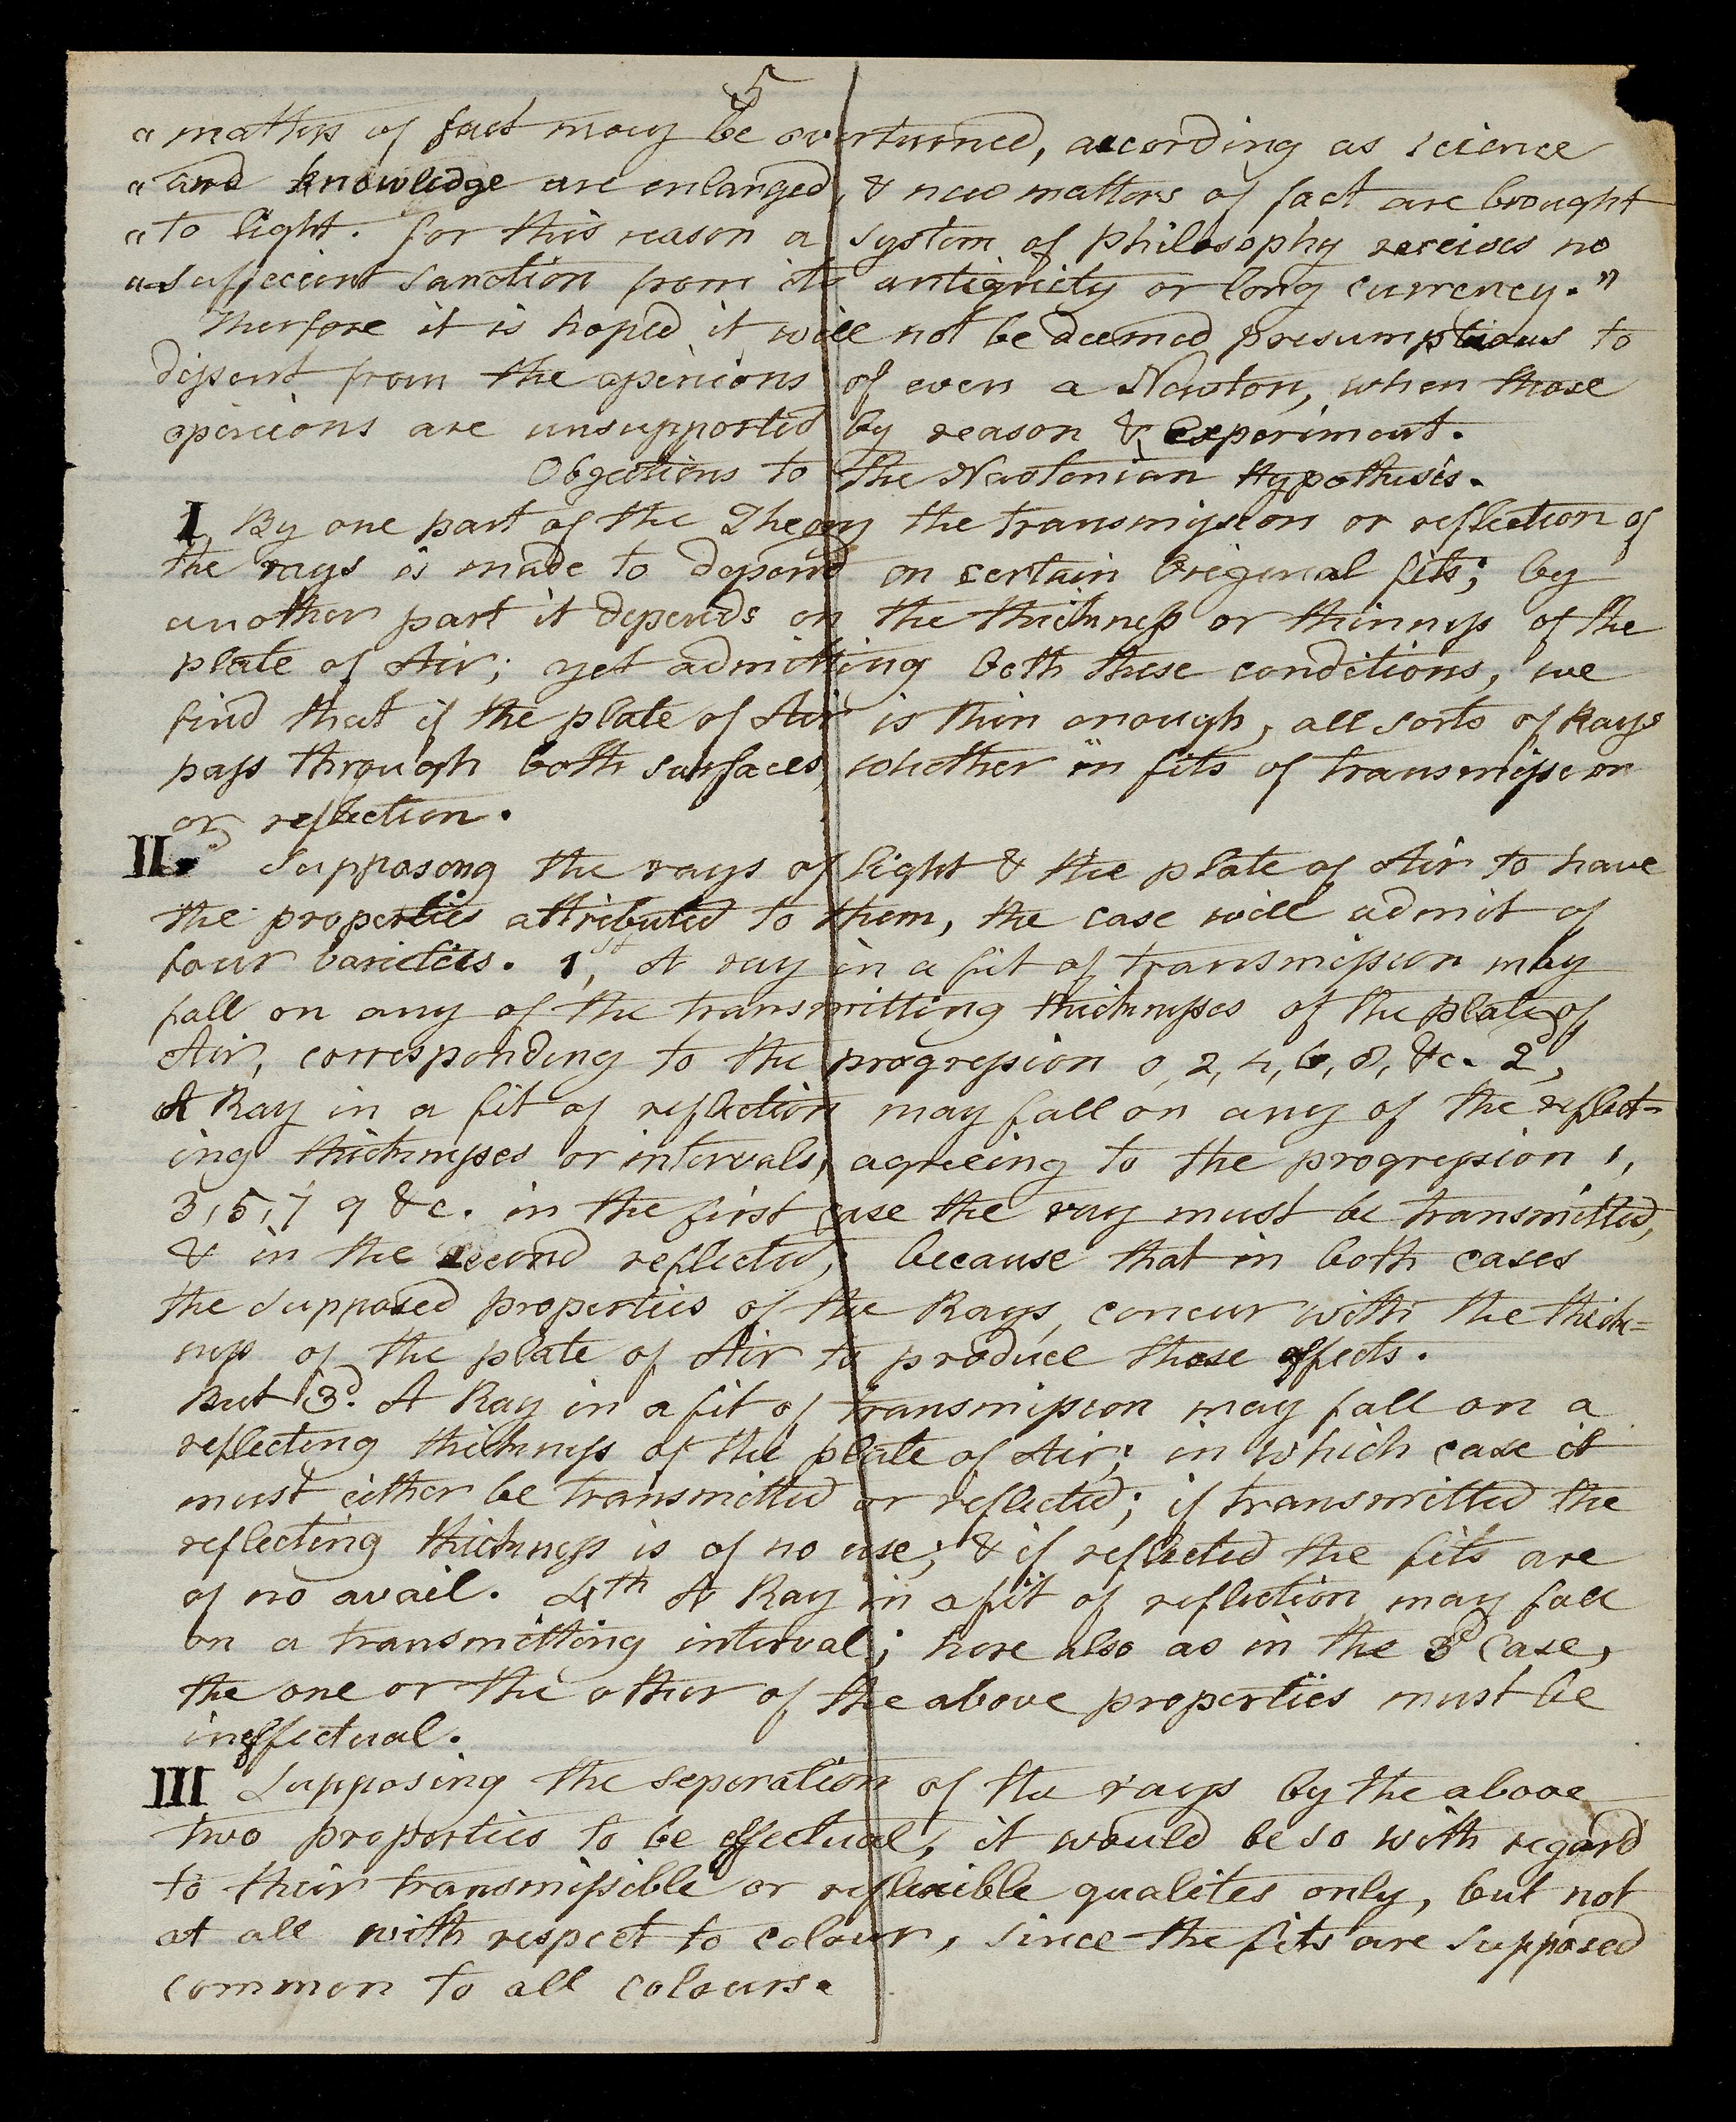 5
" matters of fact may be overturned, according as science
" and knowledge are enlarged, & new matters of fact are brought
" to light. for this reason a system of philosophy receives no
" sufficient sanction from its antiquity or long currency."
Therfore it is hoped it will not be deemed presumptuous to
dissent from the openions of even a Newton, when those
openeions are unsupported by reason & Experiment.
Objections to the Newtonian Hypothesis.
I By one part of the Theory the transmission or reflection of
the rays is made to depend on certain Original fits; by
another part it depends on the thickness or thinness of the
plate of Air; yet admitting both these conditions, we
find that if the plate of Air is thin enough, all sorts of Rays
pass through both surfaces, whether in fits of transmission
or reflection.
II. Supposong the rays of light & the plate of Air to have
the properties attributed to them, the case will admit of
four varieties. 1st, A ray in a fit of transmission may
fall on any of the transmitting thicknesses of the plate of
Air, corresponding to the progression 0, 2, 4, 6, 8, &c. 2,
A Ray in a fit of reflection may fall on any of the reflect-
ing thicknesses or intervals, agreeing to the progression 1,
3, 5, 7 9 &c. in the first case the ray must be transmitted,
& in the second reflected, because that in both cases
the supposed properties of the Rays, concur with the thick=
ness of the plate of Air to produce those effects.
But 3d. A Ray in a fit of transmission may fall on a
reflecting thickness of the plate of Air; in which case it
must either be transmitted or reflected; if transmitted the
reflecting thickness is of no use; & if reflected the fits are
of no avail. 4th A Ray in a fit of reflection may fall
on a transmitting interval; here also as in the 3d Case,
the one or the other of the above properties must be
ineffectual.
III Supposing the seperation of the rays by the above
two properties to be effectual, it would be so with regard
to their transmissible or reflexible qualites only, but not
at all with respect to colour, since the fits are supposed
common to all colours.